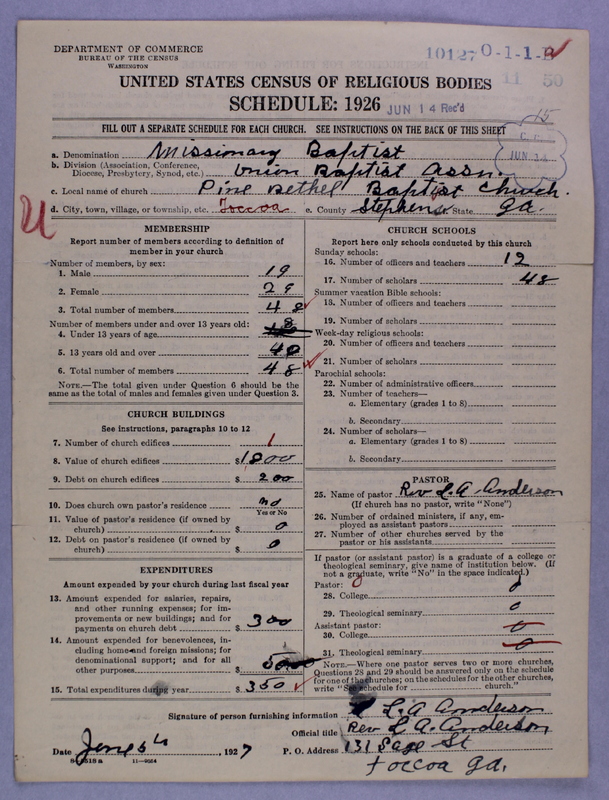 DEPARTMENT OF COMMERCE
BUREAU OF THE CENSUS
WASHINGTON
10127 0-1-1-B
11 50
UNITED STATES CENSUS OF RELIGIOUS BODIES
SCHEDULE: 1926
JUN 14 Rec'd
15
FILL OUT A SEPARATE SCHEDULE FOR EACH CHURCH. SEE INSTRUCTIONS ON THE BACK OF THIS SHEET
a. Denomination Missionary Baptist
b. Division (Association, Conference, Diocese, Presbytery, Synod, etc.) Union Baptist Assn.
c. Local name of church Pine Bethel Baptist Church.
d. City, town, village, or township, etc. Toccoa e. County Stephens State Ga.
MEMBERSHIP
Report number of members according to definition of
member in your church
Number of members, by sex:
1. Male 19
2. Female 29
3. Total number of members 48
Number of members under and over 13 years old:
4. Under 13 years of age 8
5. 13 years old and over 40
6. Total number of members 48
NOTE.—The total given under Question 6 should be
same as the total of males and females given under Question 3.
CHURCH BUILDINGS
See instructions, paragraphs 10 to 12
7. Number of church edifices 1
8. Value of church edifices $1800
9. Debt on church edifices $ 200
10. Does church own pastor's residence no
Yes or No
11. Value of pastor's residence (if owned by
church) $ 0
12. Debt on pastor's residence (if owned by
church) $ 0
EXPENDITURES
Amount expended by your church during last fiscal year
13. Amount expended for salaries, repairs,
and other running expenses; for im-
provements or new buildings; and for
payments on church debt $ 300
14. Amount expended for benevolences, in-
cluding home and foreign missions; for
denominational support; and for all
other purposes $ 50
15. Total expenditures during year $ 350
CHURCH SCHOOLS
Report here only schools conducted by this church
Sunday schools:
16. Number of officers and teachers 12
17. Number of scholars 48
Summer vacation Bible schools:
18. Number of officers and teachers
19. Number of scholars
Week-day religious schools:
20. Number of officers and teachers
21. Number of scholars
Parochial schools:
22. Number of administrative officers
23. Number of teachers—
a. Elementary (grades 1 to 8)
b. Secondary
24. Number of scholars—
a. Elementary (grades 1 to 8)
b. Secondary
PASTOR
25. Name of pastor Rev L. A. Anderson
(If church has no pastor, write "None")
26. Number of ordained ministers, if any, em-
ployed as assistant pastors
27. Number of other churches served by the
pastor or his assistants
If pastor (or assistant pastor) is a graduate of a college or
theological seminary, give name of institution below. (If
not a graduate, write "No" in the space indicated.)
Pastor:
28. College 0
29. Theological seminary 0
Assistant pastor:
30. College 0
31. Theological seminary 0
NOTE.—Where one pastor serves two or more churches,
Questions 28 and 29 should be answered only on the schedule
for one of the churches; on the schedules for the other churches,
write "See schedule for church."
Signature of person furnishing information L. A. Anderson
Official title Rev L. A. Anderson
Date June 1927 P. O. Address 131 Sage St
Toccoa Ga.
11—9264